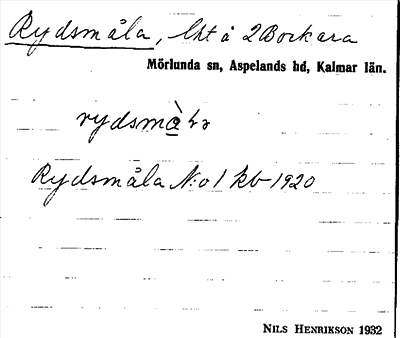 Rydsmåla, lht å 2 Bockara
Mörlunda sn, Aspelands hd, Kalmar län.
rydsmà
Rydsmåla N:o 1 kb 1920
NILS HENRIKSON 1932